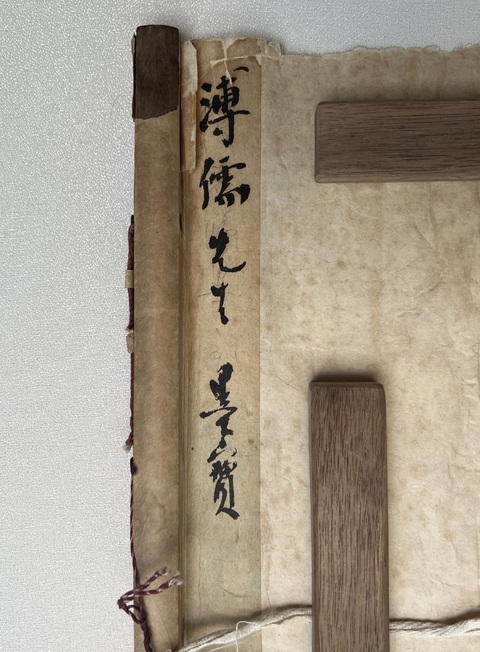 溥儒先生墨寶